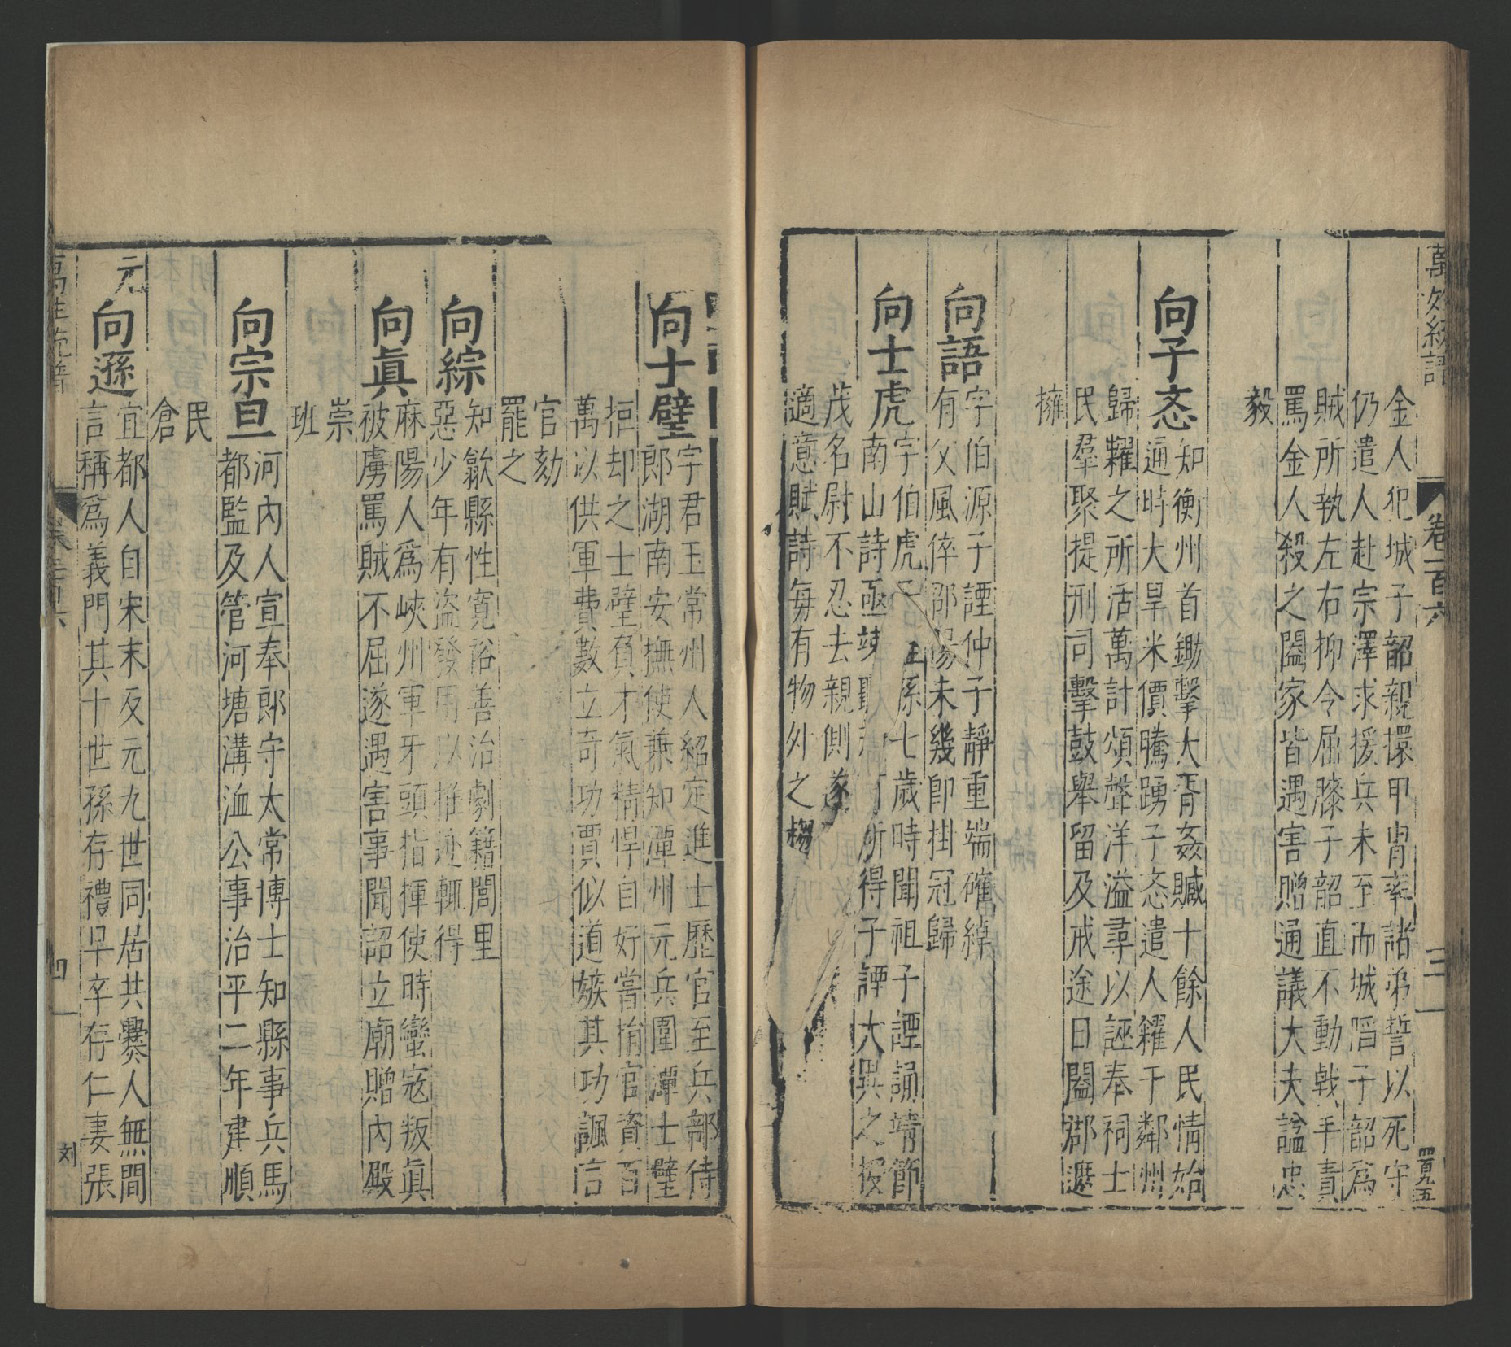 萬姓統譜
卷一百六
三
金人犯城子韶親擐甲胄率諸弟誓以死守
仍遣人赴宗澤求援兵未至而城陷子韶爲
賊所執左右抑令屈膝子韶直不動戟手責
罵金人殺之闔家皆遇害贈通議大夫諡忠
毅
向子忞
知衡州首鋤擊大胥姦贓十餘人民情始
通時大旱米價騰踴子忞遣人糴于鄰州
歸糶之所活萬計頌聲洋溢尋以誣奉祠士
民羣聚提刑司擊鼓舉留及戒途日闔郡遮
擁
向語
字伯源子諲仲子靜重端確綽
有父風倅邵陽未幾卽掛冠歸
向士虎
字伯虎子 孫七歲時聞祖子諲誦靖節
南山詩亟竦聽 所得子諲大異之授
茂名尉不忍去親側遂
適意賦詩每有物外之
向士璧
字君玉常州人紹定進士歷官至兵部侍
郎湖南安撫使兼知潭州元兵圍潭士璧
拒却之士璧負才氣情悍自好嘗捐官資百
萬以供軍費數立奇功賈似道嫉其功諷言
官劾
罷之
向綜
知歙縣性寬裕善治劇籍閭里
惡少年有盜發用以推迹輒得
向眞
麻陽人爲峽州軍牙頭指揮使時蠻寇叛眞
被虜罵賊不屈遂遇害事聞詔立廟贈內殿
崇
班
向宗旦
河內人宣奉郎守太常博士知縣事兵馬
都監及管河塘溝洫公事治平二年建順
民
倉
元
向遜
宜都人自宋末及元九世同居共爨人無間
言稱爲義門其十世孫存禮早卒存仁妻張
萬姓統譜
四
刘